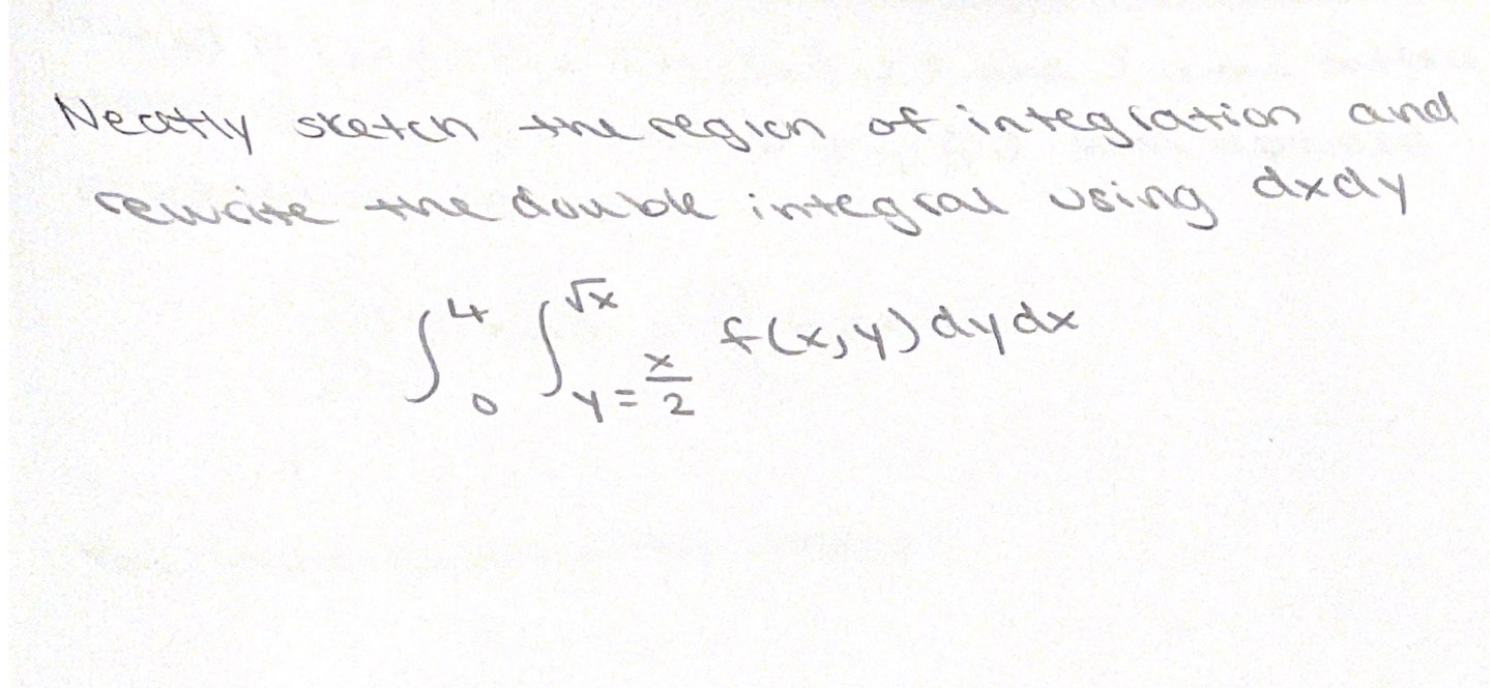 Neatly sketch the region of integration and
rewrite the double integral using dxdy
∫₀⁴ ∫_{y=x/2}^{√x} f(x,y) dy dx